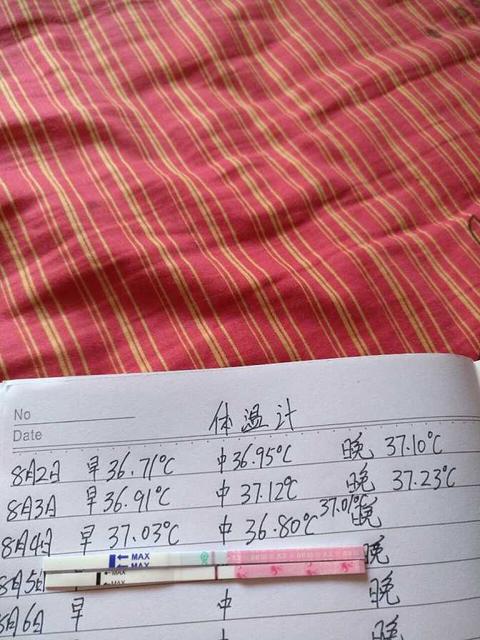 No
体温计
Date
8月2日 早36.71℃ 中36.95℃ 晚 37.10℃
8月3日 早36.91℃ 中37.12℃ 晚 37.23℃
8月4日 早 37.03℃ 中 36.80℃ 37.01℃ 晚
MAX
MAX
MAX
8月5日 晚
8月6日 早 中 晚
中 晚